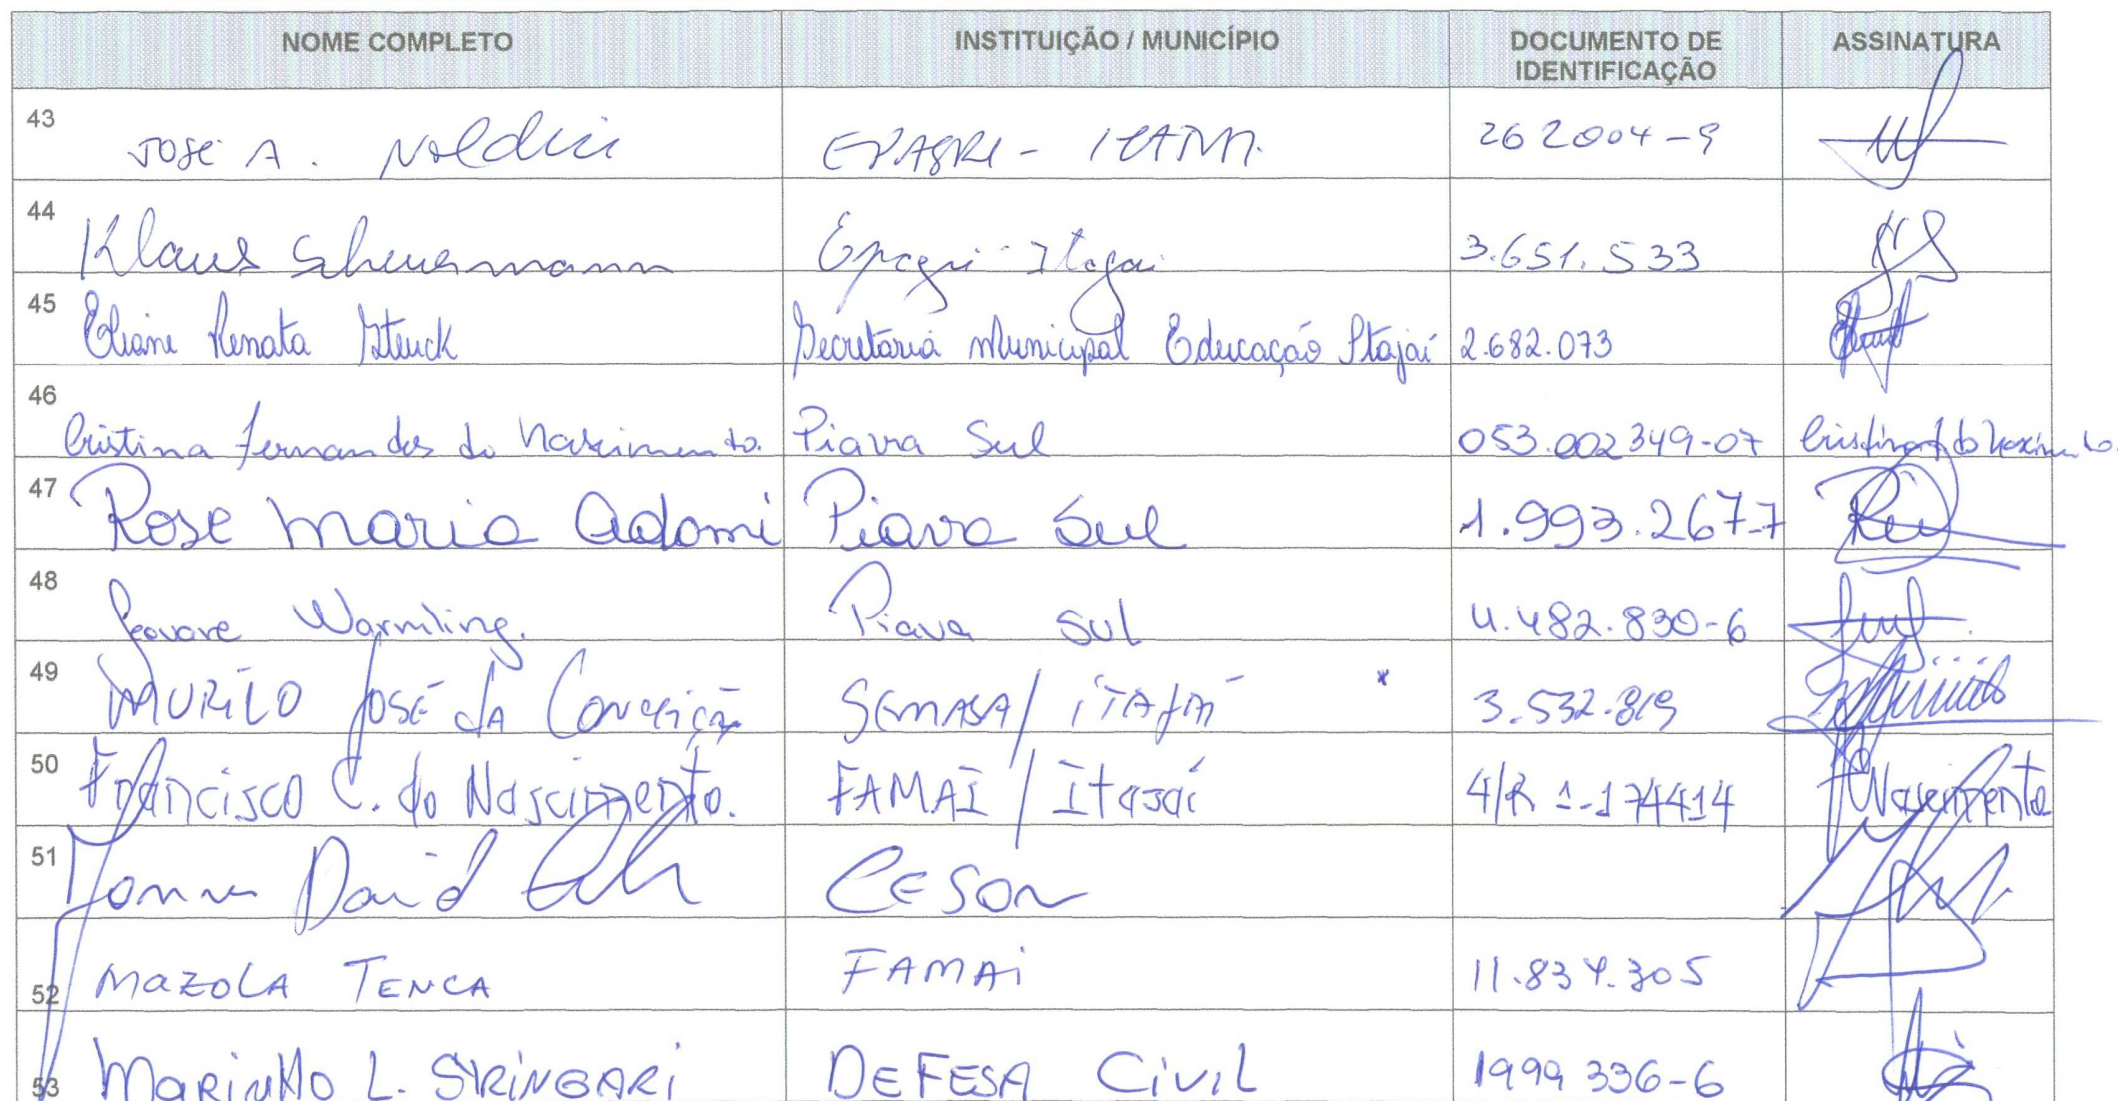 NOME COMPLETO INSTITUIÇÃO / MUNICÍPIO DOCUMENTO DE IDENTIFICAÇÃO ASSINATURA
43 JOSÉ A. Noldin EPAGRI - ITAJAÍ 262004-9
44 Klaus Scheuermann Epagri - Itajaí 3.651.533
45 Eliane Renata Steuck Secretaria Municipal Educação Itajaí 2.682.073
46 Cristina Fernandes do Nascimento. Piava Sul 053.002349-07 Cristina F. do Nascimento.
47 Rose Maria Adami Piava Sul 1.993.267-7
48 Warmling. Piava Sul 4.482.830-6
49 MURILO JOSÉ dA Conceição SEMASA / iTAJAÍ 3.532.819
50 Francisco C. do Nascimento. FAMAI / Itajaí 4/R 1-174414 F Nascimento
51 David
52 MAZOLA TENCA FAMAi 11.834.305
53 MARiNHO L. STRiNGARi DEFESA CiViL 1999 336-6